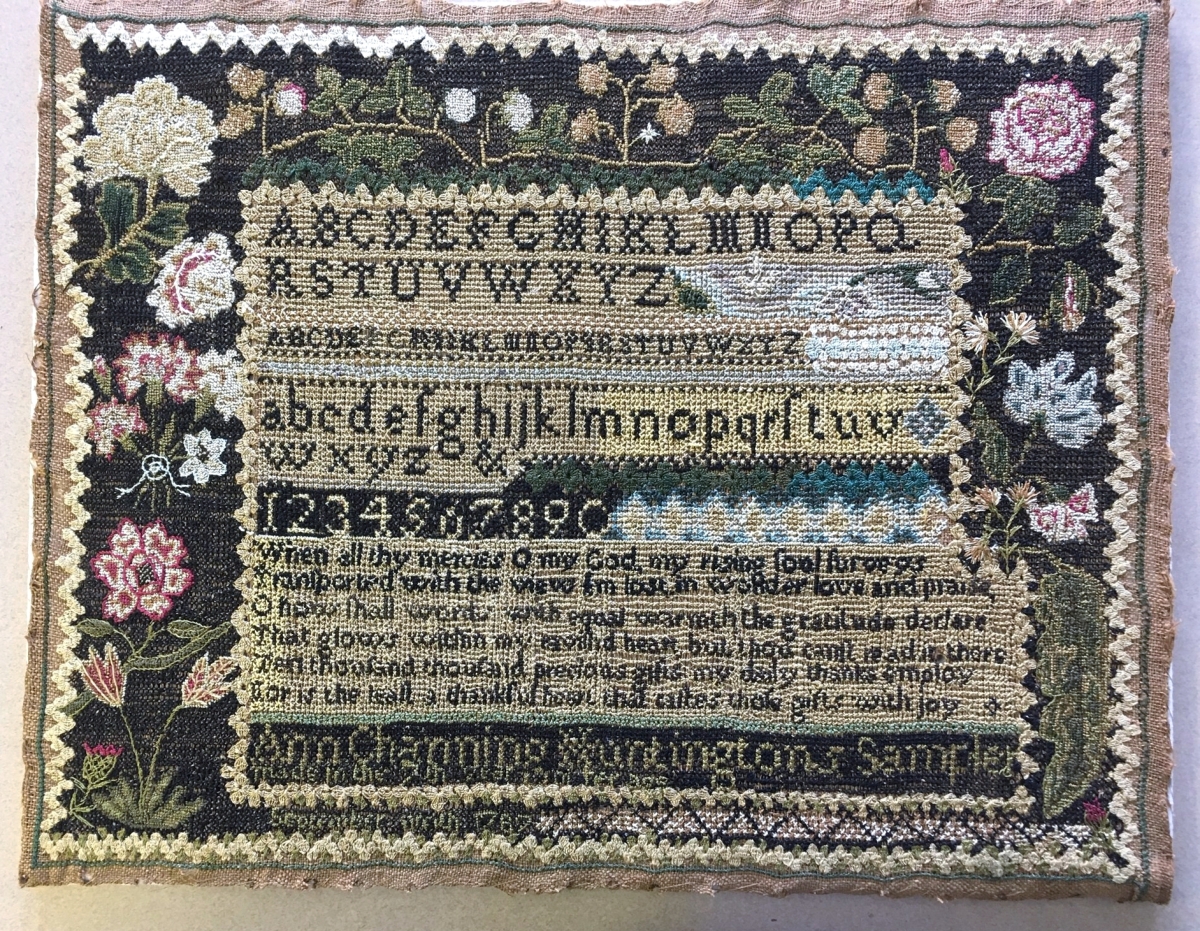 ABCDEFGHIKLMNOPQ
RSTUVWXYZ
ABCDEFGHIKLMNOPQRSTUVWXYZ
abcdefghijklmnopqrſtuv
wxyz &
1234567890
When all thy mercies O my God my riſing ſoul ſurveys
Tranſported with the view I'm loſt in wonder love and praiſe
O how ſhall words with equal warmth the gratitude declare
That glows within my raviſh'd heart but thou canſt read it there
Ten thouſand thouſand precious gifts my daily thanks employ
Nor is the leaſt a thankful heart that taſtes thoſe gifts with joy
Ann Channing Huntingtons Sampler